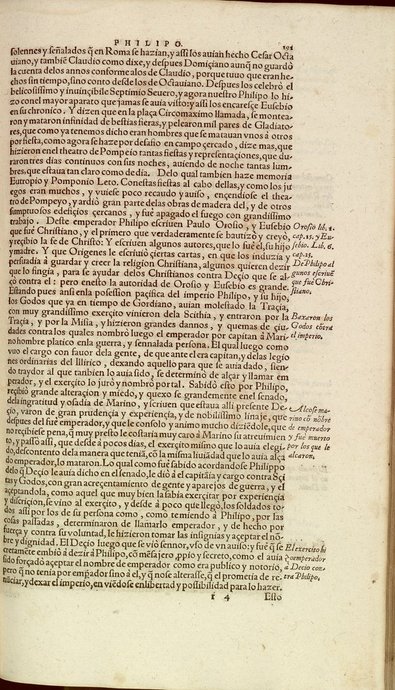 PHILIPO.
solennes y señalados q̃ en Roma se hazian, y assi los auian hecho Cesar Octa
uiano, y tambiẽ Claudio como dixe, y despues Domiçiano aunq̃ no guardò
la cuenta delos annos conforme alos de Claudio, porque tuuo que eran he-
chos sin tiempo, sino conto desde los de Octauiano. Despues los celebrò el
belicosissimo y inuinçibile Septimio Seuero, y agora nuestro Philipo lo hi-
zo con el mayor aparato que jamas se auia visto: y assi los encaresçe Eusebio
en su chronico. Y dizen que en la plaça Circo maximo llamada, se montea-
ron y mataron infinidad de bestias fieras, y pelearon mil pares de Gladiato-
res, que como ya tenemos dicho eran hombres que se matauan vnos a otros
por fiesta, como agora se haze por desafio en campo çercado, dize mas, que
hizieron enel theatro de Pompeio tantas fiestas y representaçiones, que du-
raron tres dias continuos con sus noches, auiendo de noche tantas lum-
bres, que estaua tan claro como de dia. Delo qual tambien haze memoria
Eutropio y Pomponio Leto. Con estas fiestas al cabo dellas, y como los jue
gos eran muchos, y vuiesse poco recaudo y auiso, ençendiose el thea-
tro de Pompeyo, y ardiò gran parte delas obras de madera del, y de otros
sumptuosos edifiçios çercanos, y fuè apagado el fuego con grandissimo
trabajo. Deste emperador Philipo escriuen Paulo Orosio, y Eusebio
que fuè Christiano, y el primero que verdaderamente se bautizò y creyò,
y reçibio la fe de Christo: Y escriuen algunos autores, que lo fuè el, su hijo
y madre. Y que Origenes le escriuiò çiertas cartas, en que los induzia y
persuadia à guardar y creer la religion Christiana, algunos quieren dezir
que lo fingia, para se ayudar delos Christianos contra Deçio que se al-
çò contra el: pero enesto la autoridad de Orosio y Eusebio es grande.
Estando pues assi enla possession paçifica del imperio Philipo, y su hijo,
los Godos que ya en tiempo de Gordiano, auian molestado la Traçia,
con muy grandissimo exerçito vinieron dela Scithia, y entraron por la
Traçia, y por la Misia, y hizieron grandes dannos, y quemas de çiu-
dades contra los quales nombrò luego el emperador por capitan à Mari-
no hombre platico enla guerra, y sennalada persona. El qual luego como
vuo el cargo con fauor dela gente, de que ante el era capitan, y delas legio
nes ordinarias del Illirico, dexando aquello para que se auia dado, sien-
do traydor al que tanbien lo auia fiado, se determinò de alçar y llamar em
perador, y el exerçito lo jurò y nombrò por tal. Sabidò esto por Philipo,
reçibiò grande alteraçion y miedo, y quexo se grandemente enel senado,
dela ingratitud y osadia de Marino, y escriuen que estaua alli presente De-
çio, varon de gran prudençia y experiençia, y de nobilissimo linaje, que
despues del fuè emperador, y que le consolo y animo mucho diziẽdole, que
no reçibiesse pena, q̃ muy presto le costaria muy caro à Marino su atreuimien
to, y passò assi, que desde à pocos dias, el exerçito mismo que lo auia elegi
do, descontento dela manera que tenià, cõ la misma liuiãdad que lo auia alçà
do emperador, lo mataron. Lo qual como fuè sabido acordandose Philippo
delo q̃ Deçio le auia dicho en el senado, le diò à el capitãia y cargo contra Sci
tas y Godos, con gran acreçentamiento de gente y aparejos de guerra, y el
açeptandola, como aquel que muy bien la sabia exerçitar por experiençia
y discriçion, se vino al exerçito, y desde à poco que llegò, los soldados to-
dos assi por los de su persona como, como temiendo à Philipo, por las
cosas passadas, determinaron de llamarlo emperador, y de hecho por
fuerça y contra su voluntad, le hizieron tomar las insignias y açeptar el nõ-
bre y dignidad. El Deçio luego que se viò sennor, vso de vn auiso: y fuè q̃ se
cretamẽte embiò à dezir à Philipo, cõ mẽsajero, ppio y secreto, como el auia
sido forçado açeptar el nombre de emperador como era publico y notorio,
pero q̃ no tenia por emperador sino à el, y q̃ no se alterasse, q̃ el prometia de re-
nũçiar, y dexar el imperio, en viẽdose en libertad y possibilidad para lo hazer.
f 4 Esto
Orosio lib.
cap. 15. y Eu-
sebio. Lib. 6.
cap. 25.
De Philipo al
gunos escriuẽ
que fuè Chri-
stiano.
Baxaron los
Godos cõtra
el imperio.
Alçose ma-
rino cõ nõbre
de emperador
y fuè muerto
por los que le
alçaron.
El exercito hi
zo emperador
à Deçio con-
tra Philipo.